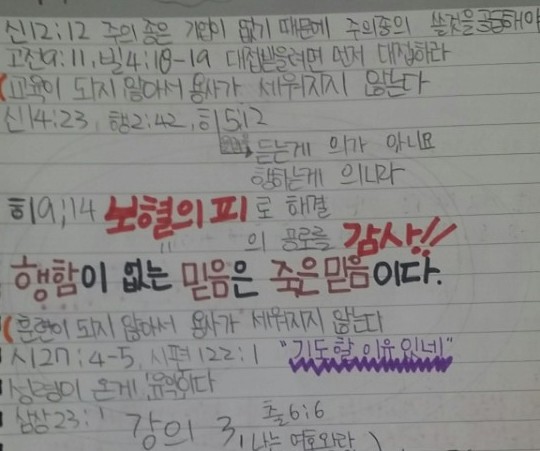 신12:12 주의 종은 기업이 없기 때문에 주의종의 쓸것을 공급해야
고전9:11, 빌4:18-19 대접받을려면 먼저 대접하라
(교육이 되지 않아서 용사가 세워지지 않는다
신14:23, 행2:42, 히5:12
듣는게 의가 아니요
행하는게 의니라
히9:14 보혈의 피로 해결
의 공로를 감사!!
행함이 없는 믿음은 죽은 믿음이다.
(훈련이 되지 않아서 용사가 세워지지 않는다
시27:4-5, 시편122:1 "기도할 이유있네"
성령이 온게 유익이다
삼상23:1
강의 3, 출6:6
나는 여호와라 )